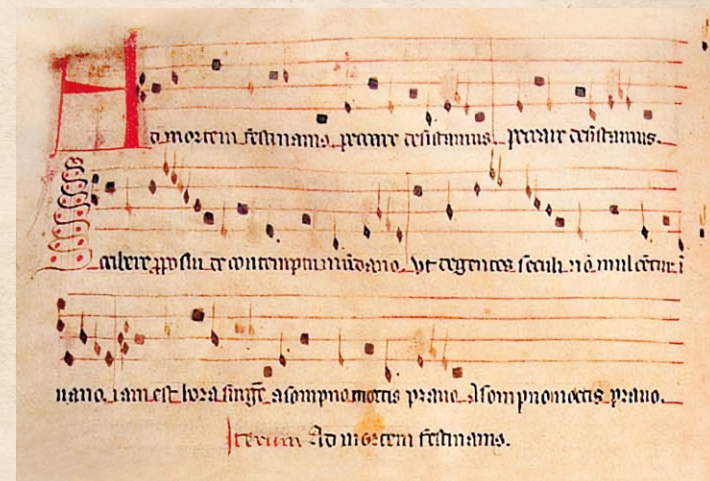 Ad mortem festinamus peccare desistamus peccare desistamus.
Scribere p̱posui de contemptu mūdano Vt degentes seculi nō mulcētur ī
uano iam est hora surgē̄ a sompno mortis prauo. A sompno mortis prauo.
Iterum Ad mortem festinamus.